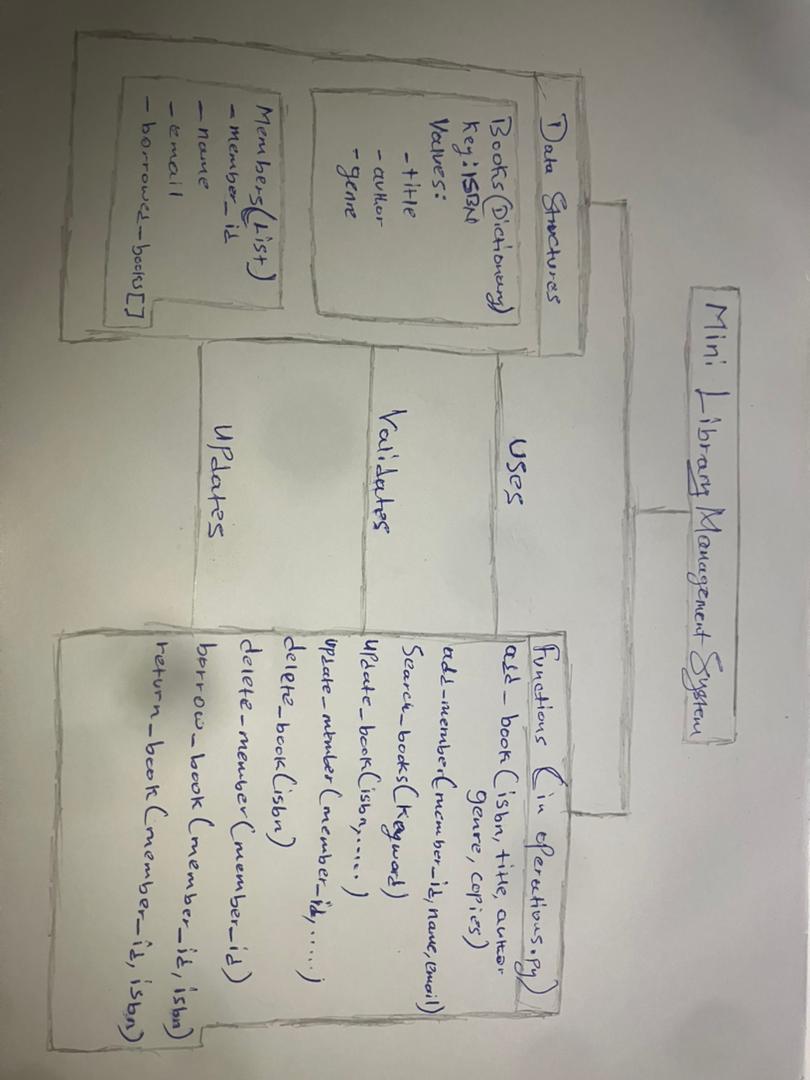 Mini Library Management System
Data Structures
Books(Dictionary)
Key:ISBN
Values:
- title
- author
- genre
Members(List)
- member_id
- name
- email
- borrowed_books[]
Uses
Validates
Updates
Functions (in operations.py)
add_book(isbn, title, author
genre, copies)
add-member(member_id, name, email)
Search_books(keyword)
update_book(isbn,.....)
update_member(member_id,.....)
delete_book(isbn)
delete_member(member_id)
borrow_book(member_id, isbn)
return_book(member_id, isbn)